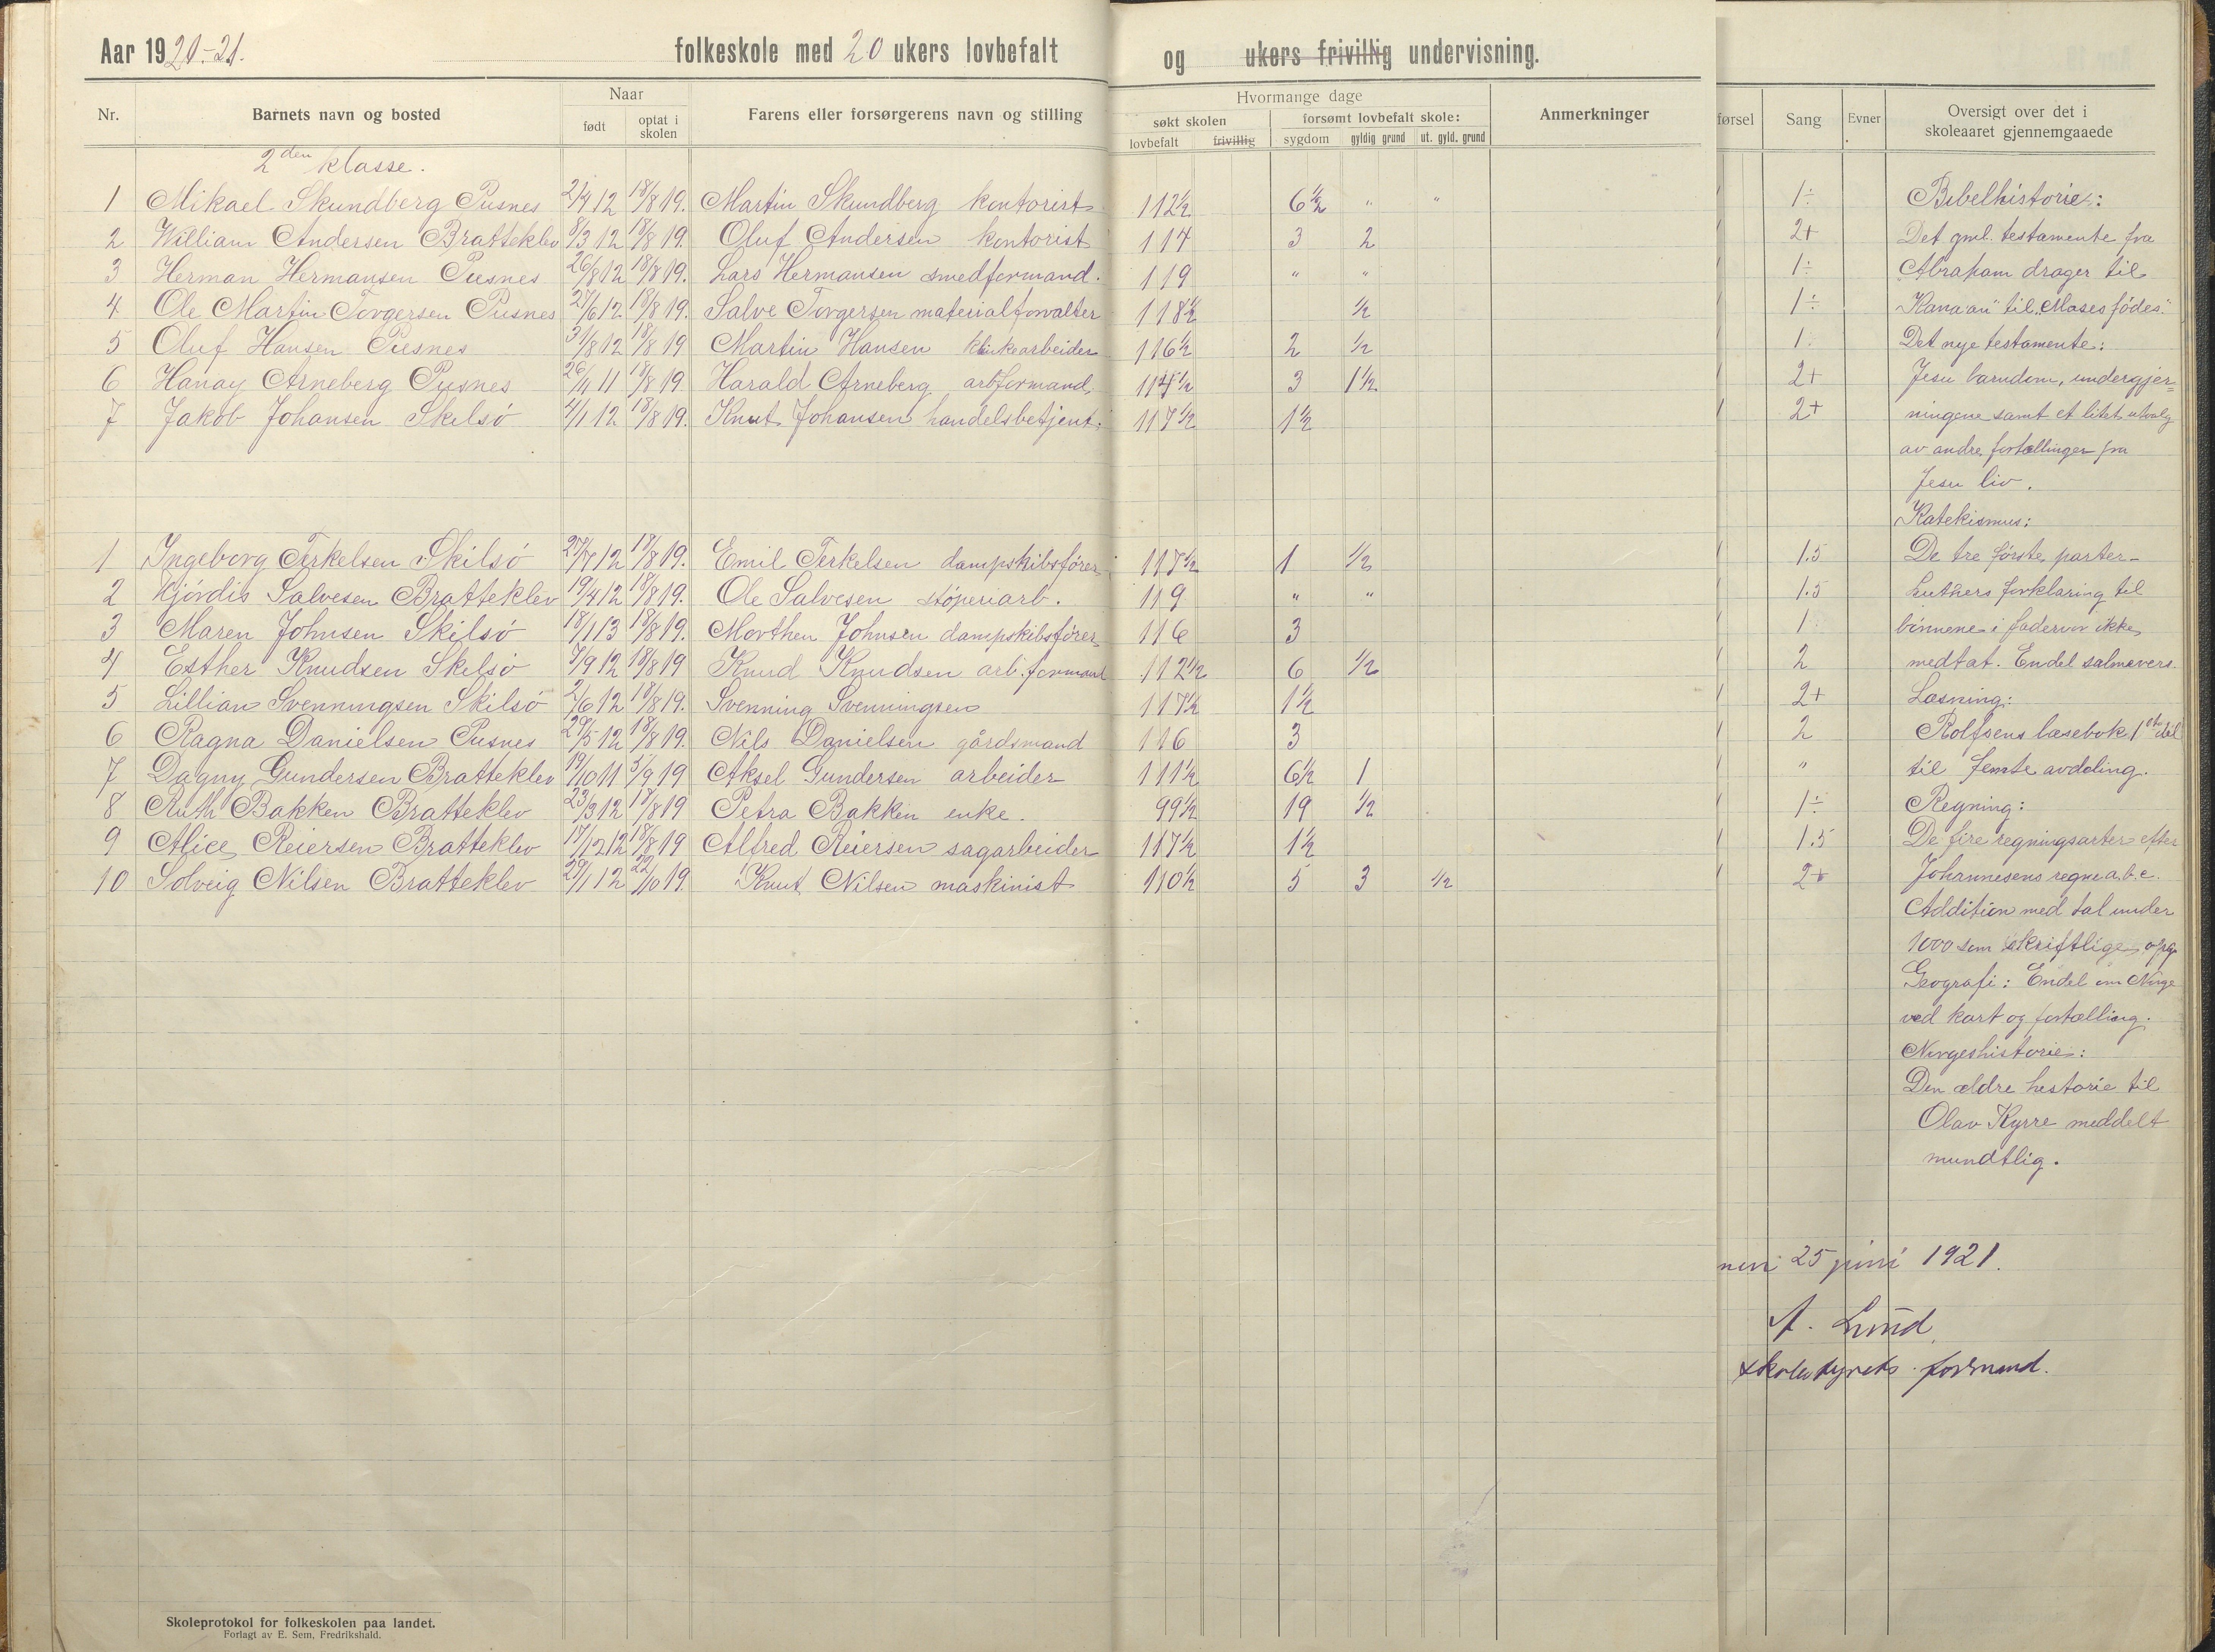 Aar 1920-21. folkeskole med 20 ukers lovbefalt og ukers frivillig undervisning.
Nr. Barnets navn og bosted Naar født optat i skolen Farens eller forsørgerens navn og stilling Hvormange dage søkt skolen lovbefalt frivillig forsømt lovbefalt skole: sygdom gyldig grund ut. gyld. grund Anmerkninger førsel Sang Evner Oversigt over det i skoleaaret gjennemgaaede
2den klasse.
1 Mikael Skundberg Pusnes 2/4 12 18/8 19. Martin Skundberg kontorist 112½ 6½ " " 1÷ Bibelhistorie:
2 William Andersen Bratteklev 8/3 12 18/8 19. Oluf Andersen kontorist 114 3 2 2+ Det gml. testamente fra
3 Herman Hermansen Pusnes 26/8 12 18/8 19. Lars Hermansen smedformand. 119 " " 1÷ Abraham drager til
4 Ole Martin Torgersen Pusnes 27/6 12 18/8 19. Salve Torgersen materialforvalter 118½ ½ 1÷ Kana'an" til "Moses fødes."
5 Oluf Hansen Pusnes 31/8 12 18/8 19 Martin Hansen klinkearbeider 116½ 2 ½ 1. Det nye testamente:
6 Hanay Arneberg Pusnes 26/11 11 18/8 19 Harald Arneberg arbformand. 114½ 3 1½ 2+ Jesu barndom, undergjer=
7 Jakob Johansen Skilsö 4/1 12 18/8 19. Knut Johansen handelsbetjent. 117½ 1½ 2+ ningene samt et litet utvalg
av andre fortællinger fra
Jesu liv.
Katekismus:
1 Ingeborg Terkelsen Skilsö 27/7 12 18/8 19. Emil Terkelsen dampskibsfører 117½ 1 ½ 1.5 De tre første parter-
2 Hjördis Salvesen Bratteklev 19/4 12 18/8 19. Ole Salvesen støperiarb. 119 " " 1.5 Luthers forklaring til
3 Maren Johnsen Skilsö 18/1 13 18/8 19. Morthen Johnsen dampskibsfører 116 3 1. bönnene i fadervor ikke
4 Esther Knudsen Skilsö 7/9 12 18/8 19 Knud Knudsen arb.formand 112½ 6 ½ 2 medtat. Endel salmevers.
5 Lillian Svenningsen Skilsö 2/6 12 18/8 19. Svenning Svenningsen 117½ 1½ 2+ Læsning:
6 Ragna Danielsen Pusnes 29/5 12 18/8 19. Nils Danielsen gårdsmand 116 3 2 Rolfsens læsebok 1ste del
7 Dagny Gundersen Bratteklev 19/10 11 5/9 19 Aksel Gundersen arbeider 111½ 6½ 1 " til femte avdeling.
8 Ruth Bakken Bratteklev 23/3 12 18/8 19 Petra Bakken enke. 99½ 19 ½ 1÷ Regning:
9 Alice Reiersen Bratteklev 17/12 12 18/8 19 Alfred Reiersen sagarbeider 117½ 1½ 1.5 De fire regningsarter efter
10 Solveig Nilsen Bratteklev 29/1 12 22/10 19. Knut Nilsen maskinist 110½ 5 3 ½ 2+ Johannesens regne a.b.c.
Addition med tal under
1000 som skriftlige opg
Geografi: Endel om Norge
ved kart og fortælling.
Norgeshistorie:
Den ældre historie til
Olav Kyrre meddelt
mundtlig.
25 juni 1921.
A. Lund.
skolestyrets formand.
Skoleprotokol for folkeskolen paa landet.
Forlagt av E. Sem, Fredrikshald.